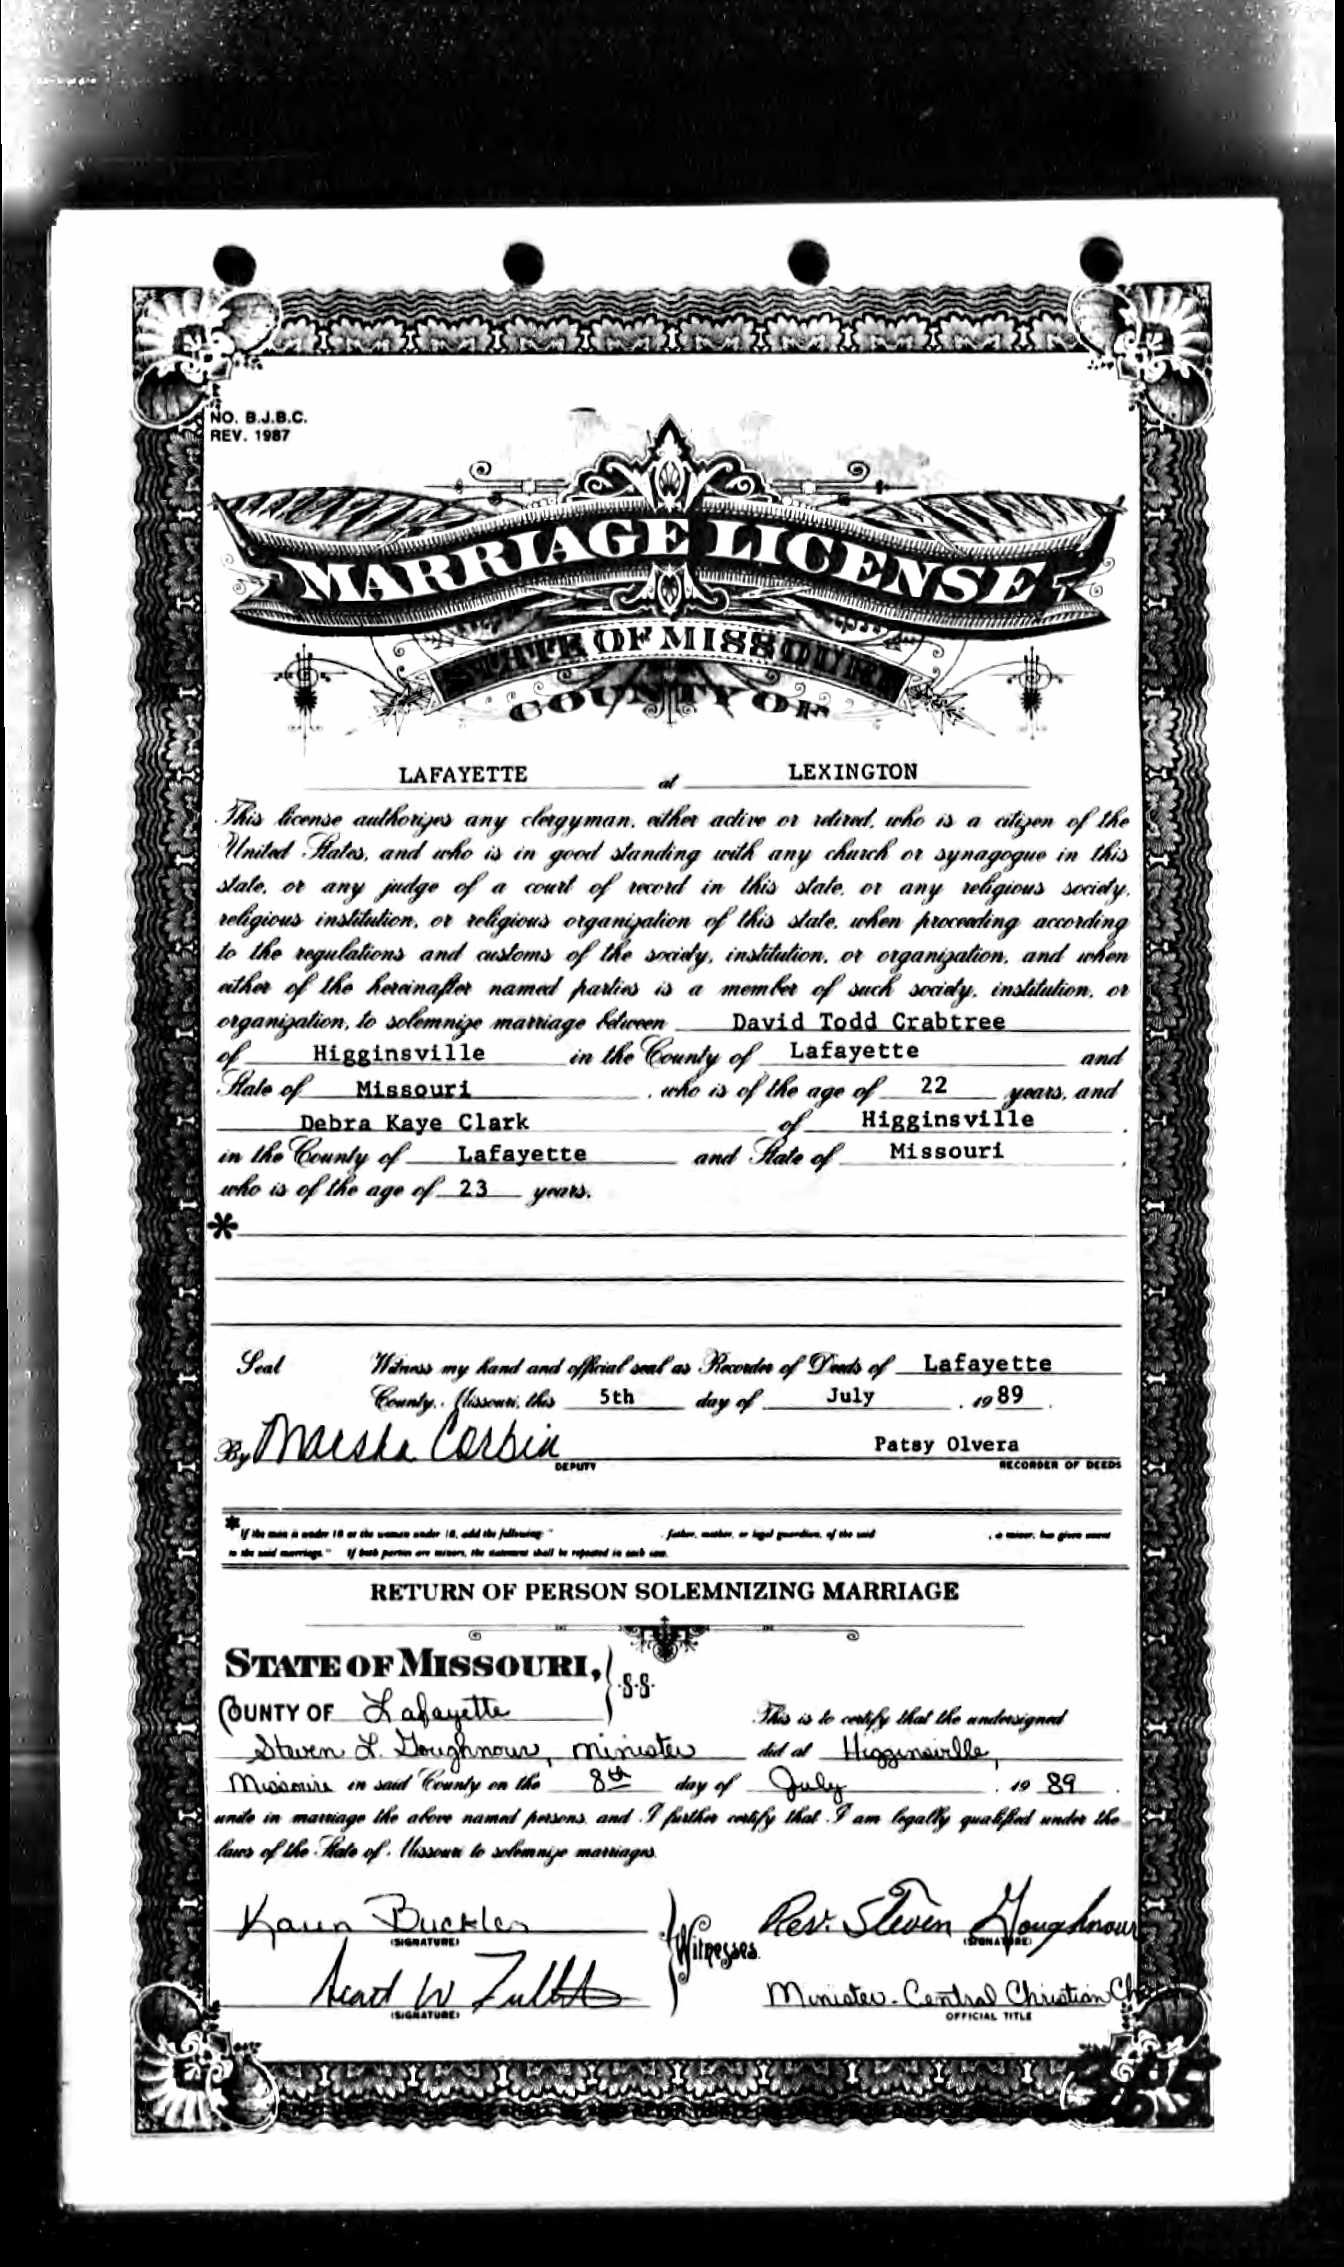 NO. B.J.B.C.
REV. 1987
MARRIAGE LICENSE
STATE OF MISSOURI
COUNTY OF
LAFAYETTE at LEXINGTON
This license authorizes any clergyman, either active or retired, who is a citizen of the
United States, and who is in good standing with any church or synagogue in this
state, or any judge of a court of record in this state, or any religious society,
religious institution, or religious organization of this state, when proceeding according
to the regulations and customs of the society, institution, or organization, and when
either of the hereinafter named parties is a member of such society, institution, or
organization, to solemnize marriage between David Todd Crabtree
of Higginsville in the County of Lafayette and
State of Missouri, who is of the age of 22 years, and
Debra Kaye Clark of Higginsville,
in the County of Lafayette and State of Missouri,
who is of the age of 23 years.
*
Seal Witness my hand and official seal as Recorder of Deeds of Lafayette
County, Missouri, this 5th day of July, 1989.
By Marsha Corbin Patsy Olvera
DEPUTY RECORDER OF DEEDS
* If the man is under 18 or the woman under 18, add the following: " , father, mother, or legal guardian, of the said , a minor, has given consent
to the said marriage." If both parties are minors, the statement shall be repeated in each case.
RETURN OF PERSON SOLEMNIZING MARRIAGE
STATE OF MISSOURI, } S.S.
COUNTY OF Lafayette This is to certify that the undersigned
Steven L. Goughnour, minister did at Higginsville,
Missouri in said County on the 8th day of July, 1989.
unite in marriage the above named persons, and I further certify that I am legally qualified under the
laws of the State of Missouri to solemnize marriages.
Karen Buckles Rev. Steven Goughnour
(SIGNATURE) Witnesses. (SIGNATURE)
W Minister - Central Christian
(SIGNATURE) OFFICIAL TITLE